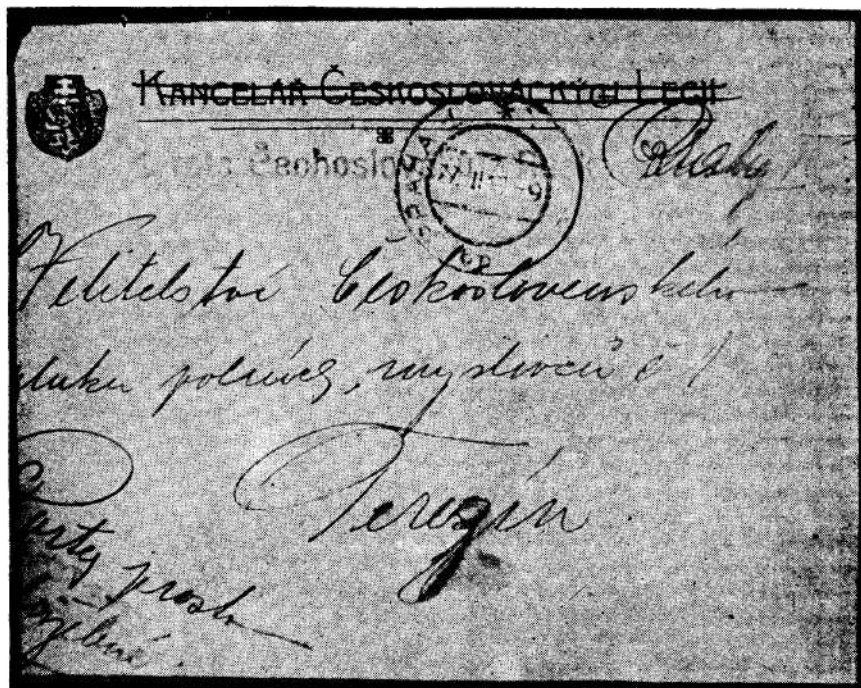 KANCELÁŘ ČESKOSLOVÁCKÝCH LEGIÍ
Čechoslo
PRAHA 1
Velitelství Československého
pluku polních myslivců č 1
Terezín
Porty prosto